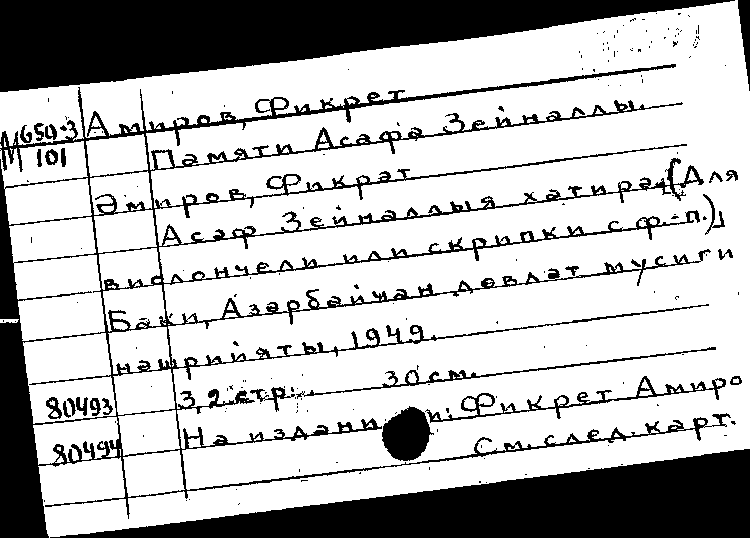 М650:3 Амиров, Фикрет
М 101 Памяти Асафа Зейналлы.
Әмиров, Фикрәт
Асәф Зейналлыя хатирә. (Для
виолончели или скрипки с ф.-п.)
Баки, Азәрбайчан довләт мусиги
нәшрийяты, 1949.
80493 3, 2 стр. 30 см.
80494 На издани и: Фикрет Амиро
См. след. карт.